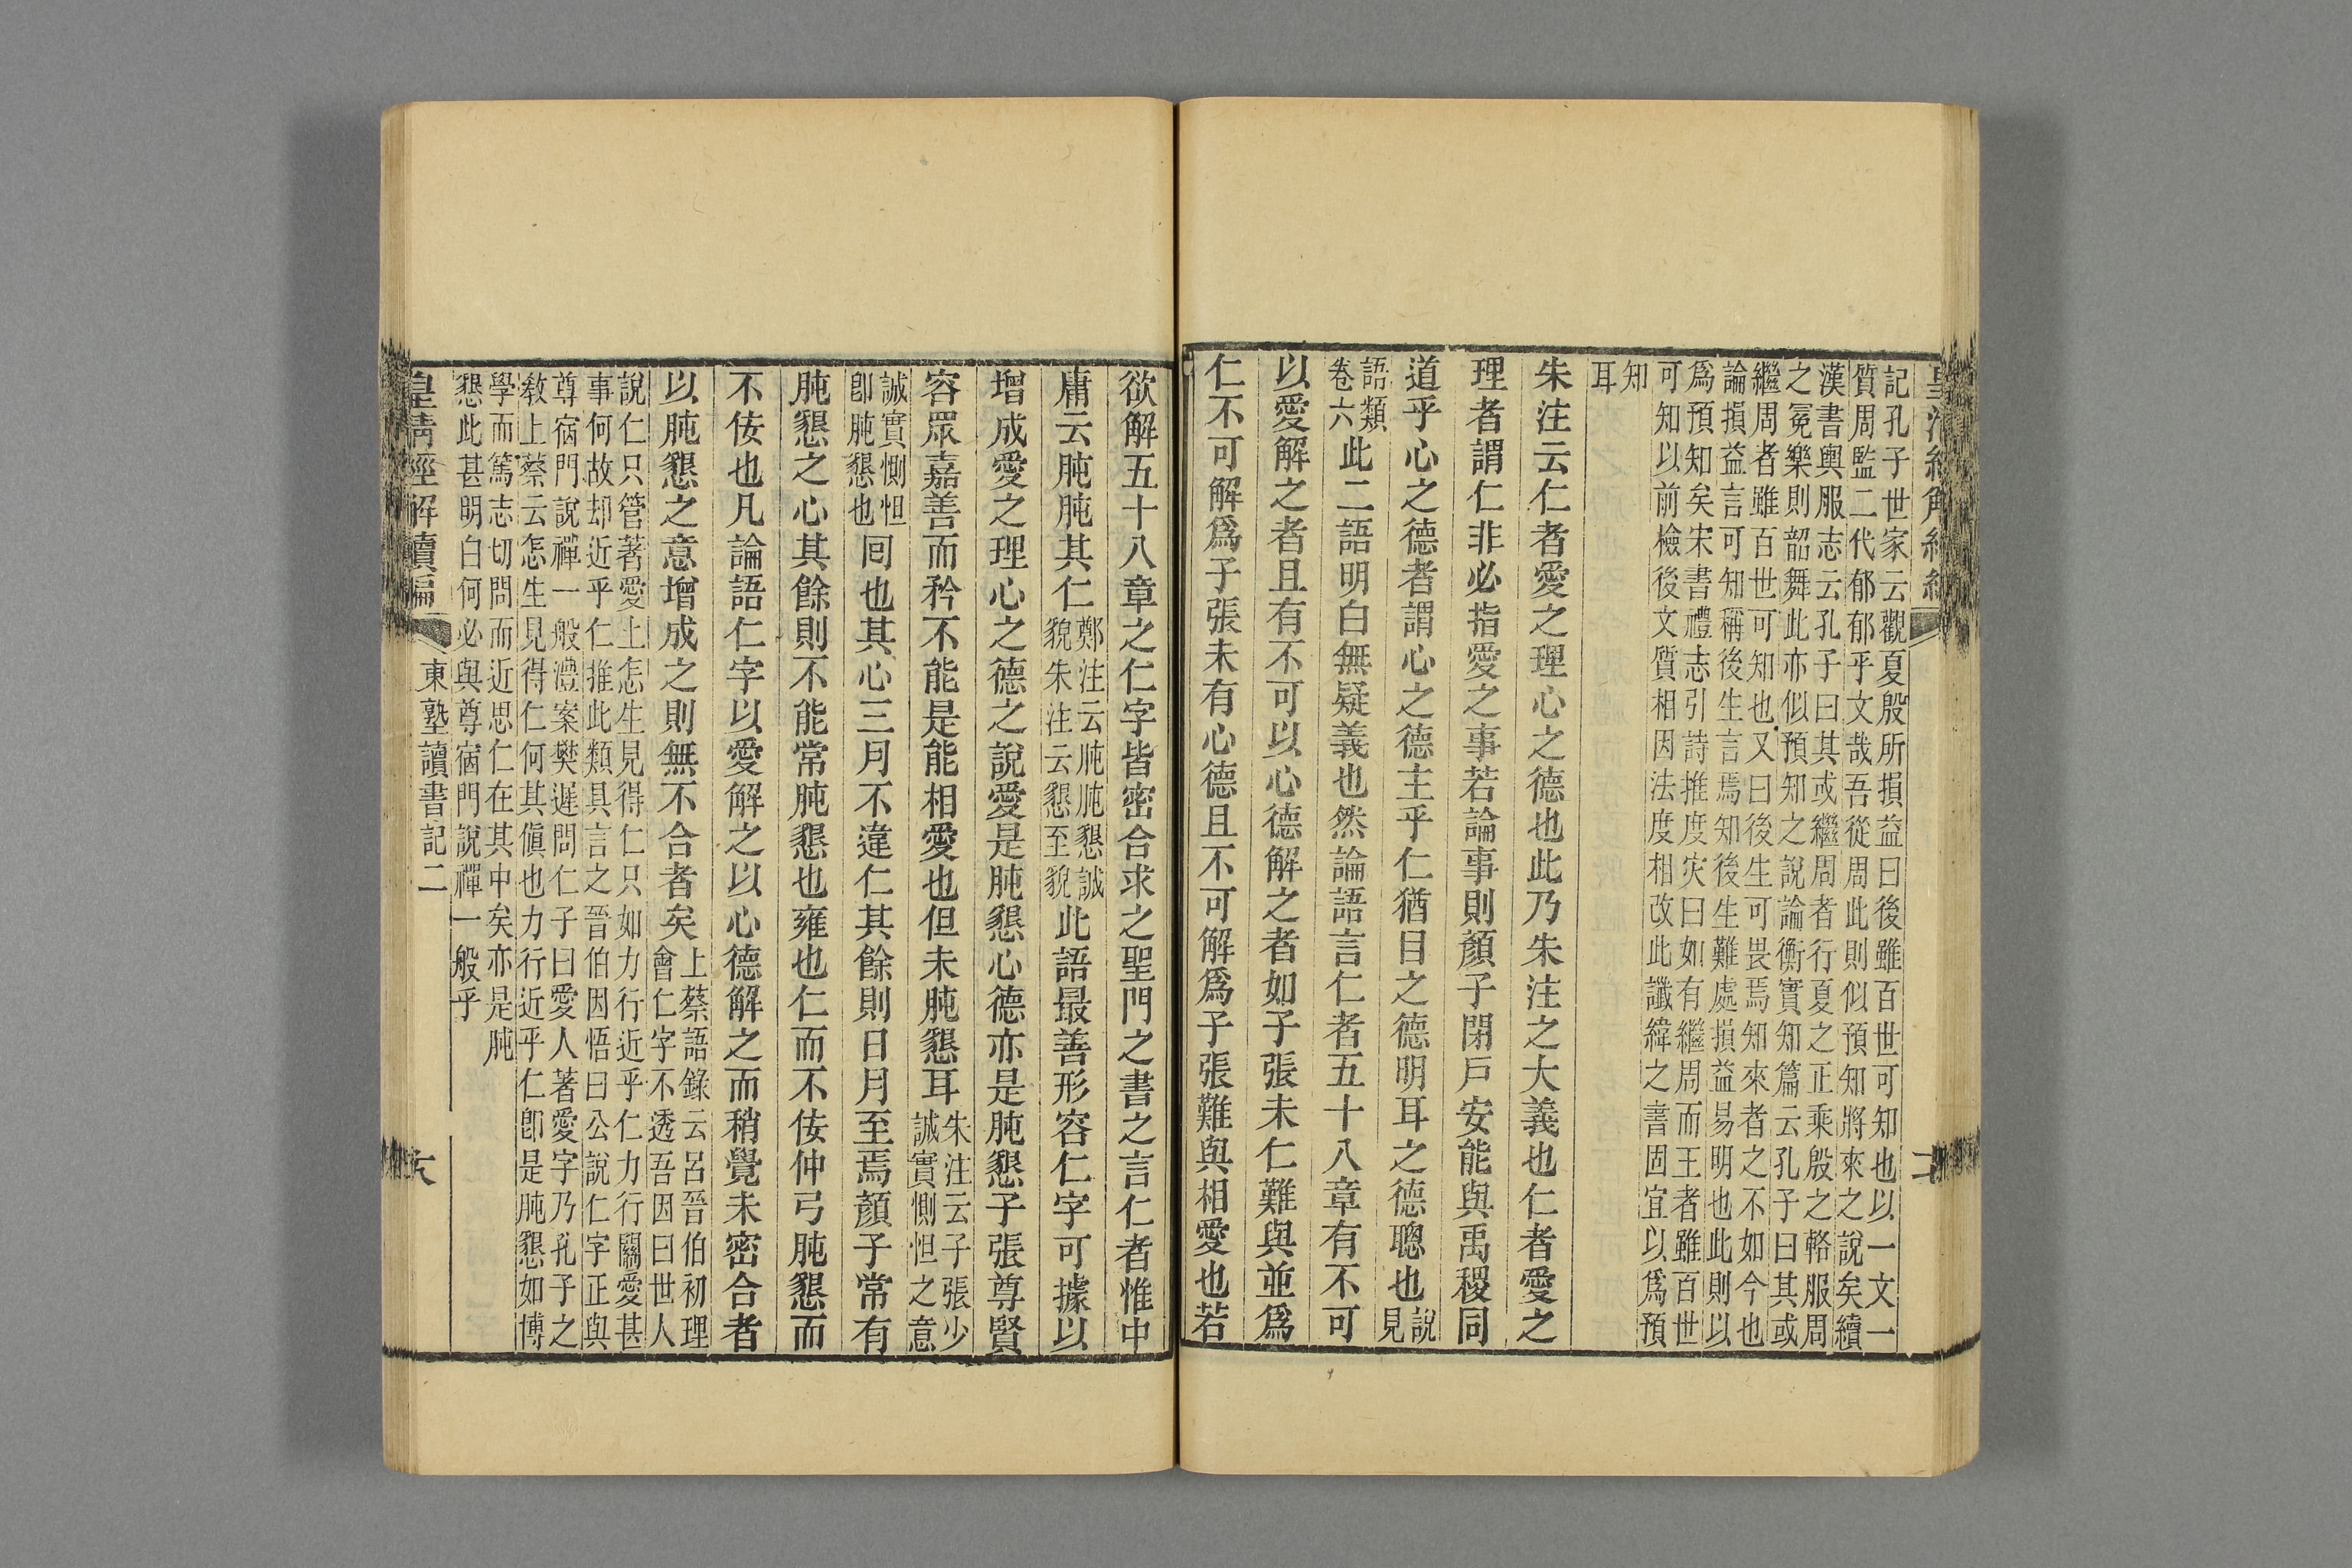 記孔子世家云觀夏殷所損益曰後雖百世可知也以一文一
質周監二代郁郁乎文哉吾從周此則似預知將來之說矣續
漢書輿服志云孔子曰其或繼周者行夏之正乘殷之輅服周
之冕樂則韶舞此亦似預知之說論衡實知篇云孔子曰其或
繼周者雖百世可知也又曰後生可畏焉知來者之不如今也
論損益言可知稱後生言焉知後生難處損益易明也此則以
爲預知矣宋書禮志引詩推度灾曰如有繼周而王者雖百世
可知以前檢後文質相因法度相改此讖緯之書固宜以爲預
知
耳
朱注云仁者愛之理心之德也此乃朱注之大義也仁者愛之
理者謂仁非必指愛之事若論事則顏子閉戸安能與禹稷同
道乎心之德者謂心之德主乎仁猶目之德明耳之德聰也說見
語類卷六此二語明白無疑義也然論語言仁者五十八章有不可
以愛解之者且有不可以心德解之者如子張未仁難與並爲
仁不可解爲子張未有心德且不可解爲子張難與相愛也若
欲解五十八章之仁字皆密合求之聖門之書之言仁者惟中
庸云肫肫其仁鄭注云肫肫懇誠貌朱注云懇至貌此語最善形容仁字可據以
增成愛之理心之德之說愛是肫懇心德亦是肫懇子張尊賢
容眾嘉善而矜不能是能相愛也但未肫懇耳朱注云子張少誠實惻怛之意
誠實惻怛卽肫懇也囘也其心三月不違仁其餘則日月至焉顏子常有
肫懇之心其餘則不能常肫懇也雍也仁而不佞仲弓肫懇而
不佞也凡論語仁字以愛解之以心德解之而稍覺未密合者
以肫懇之意增成之則無不合者矣上蔡語錄云呂晉伯初理會仁字不透吾因曰世人
說仁只管著愛上怎生見得仁只如力行近乎仁力行關愛甚
事何故却近乎仁推此類具言之晉伯因悟曰公說仁字正與
尊宿門說禪一般澧案樊遲問仁子曰愛人著愛字乃孔子之
敎上蔡云怎生見得仁何其傎也力行近乎仁卽是肫懇如博
學而篤志切問而近思仁在其中矣亦是肫
懇此甚明白何必與尊宿門說禪一般乎
皇清經解續編 東塾讀書記二